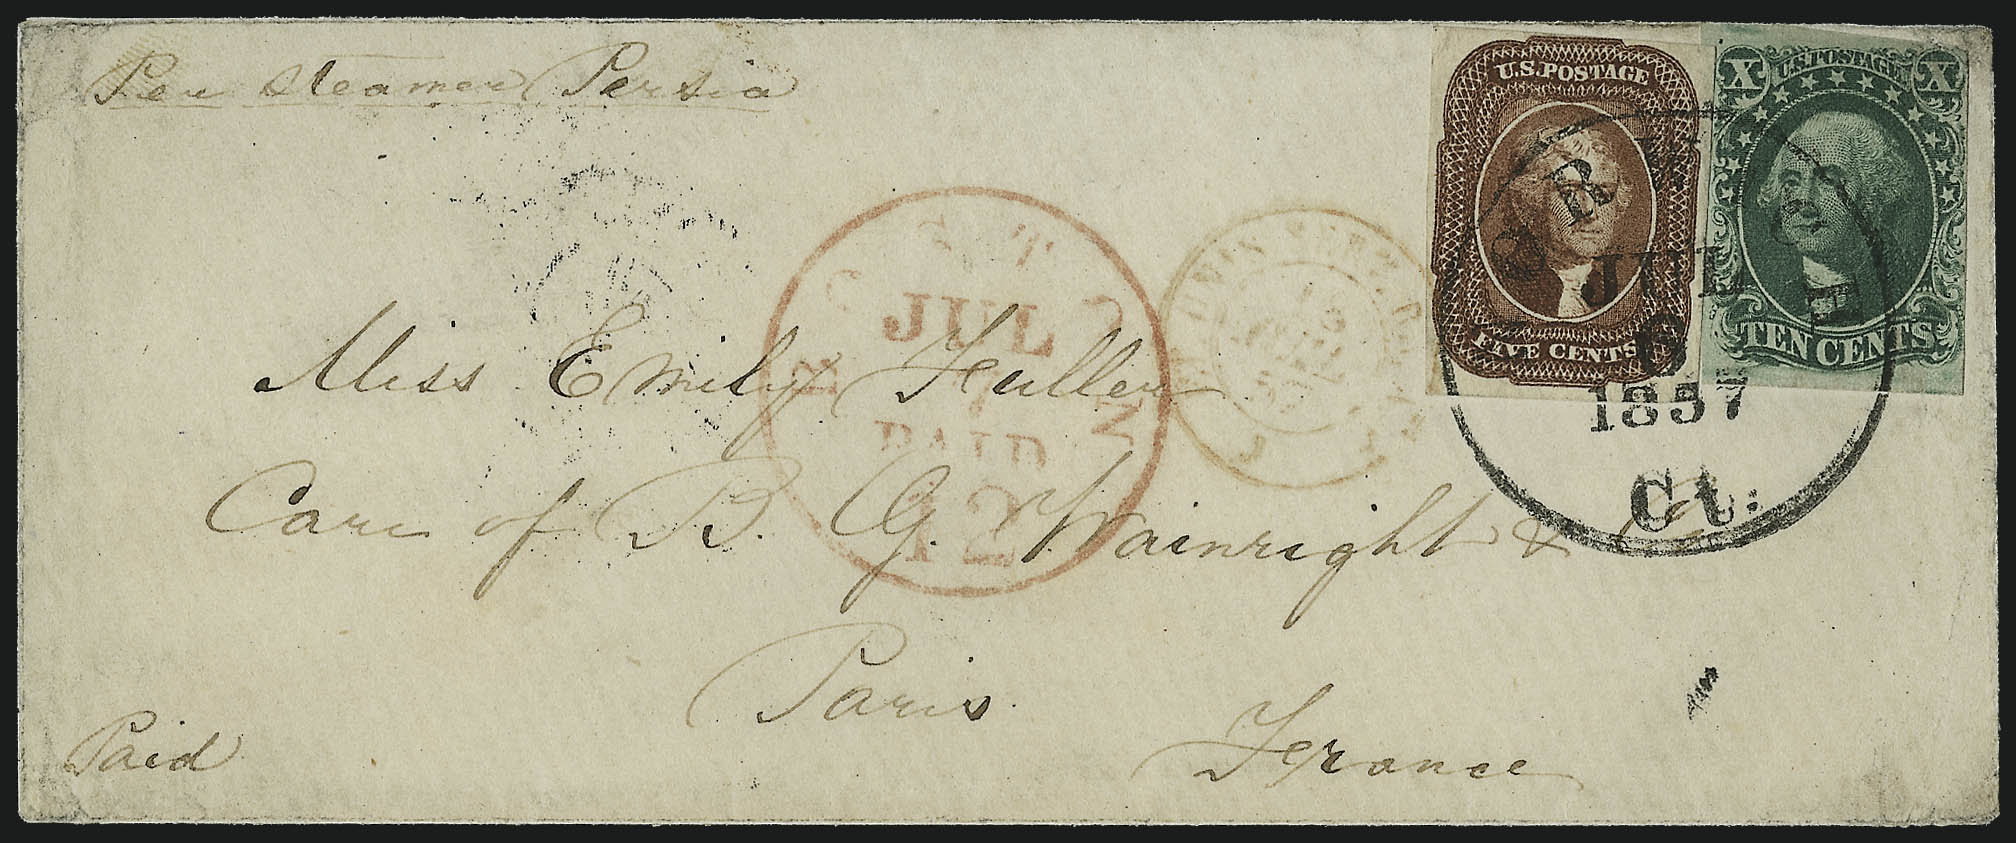 Per Steamer Persia
U.S. POSTAGE
FIVE CENTS
X U.S. POSTAGE X
TEN CENTS
JUL
6
1857
Ct.
JUL
PAID
12
Miss Emily Fuller
Care of B. G. Wainright &
Paris
France
Paid